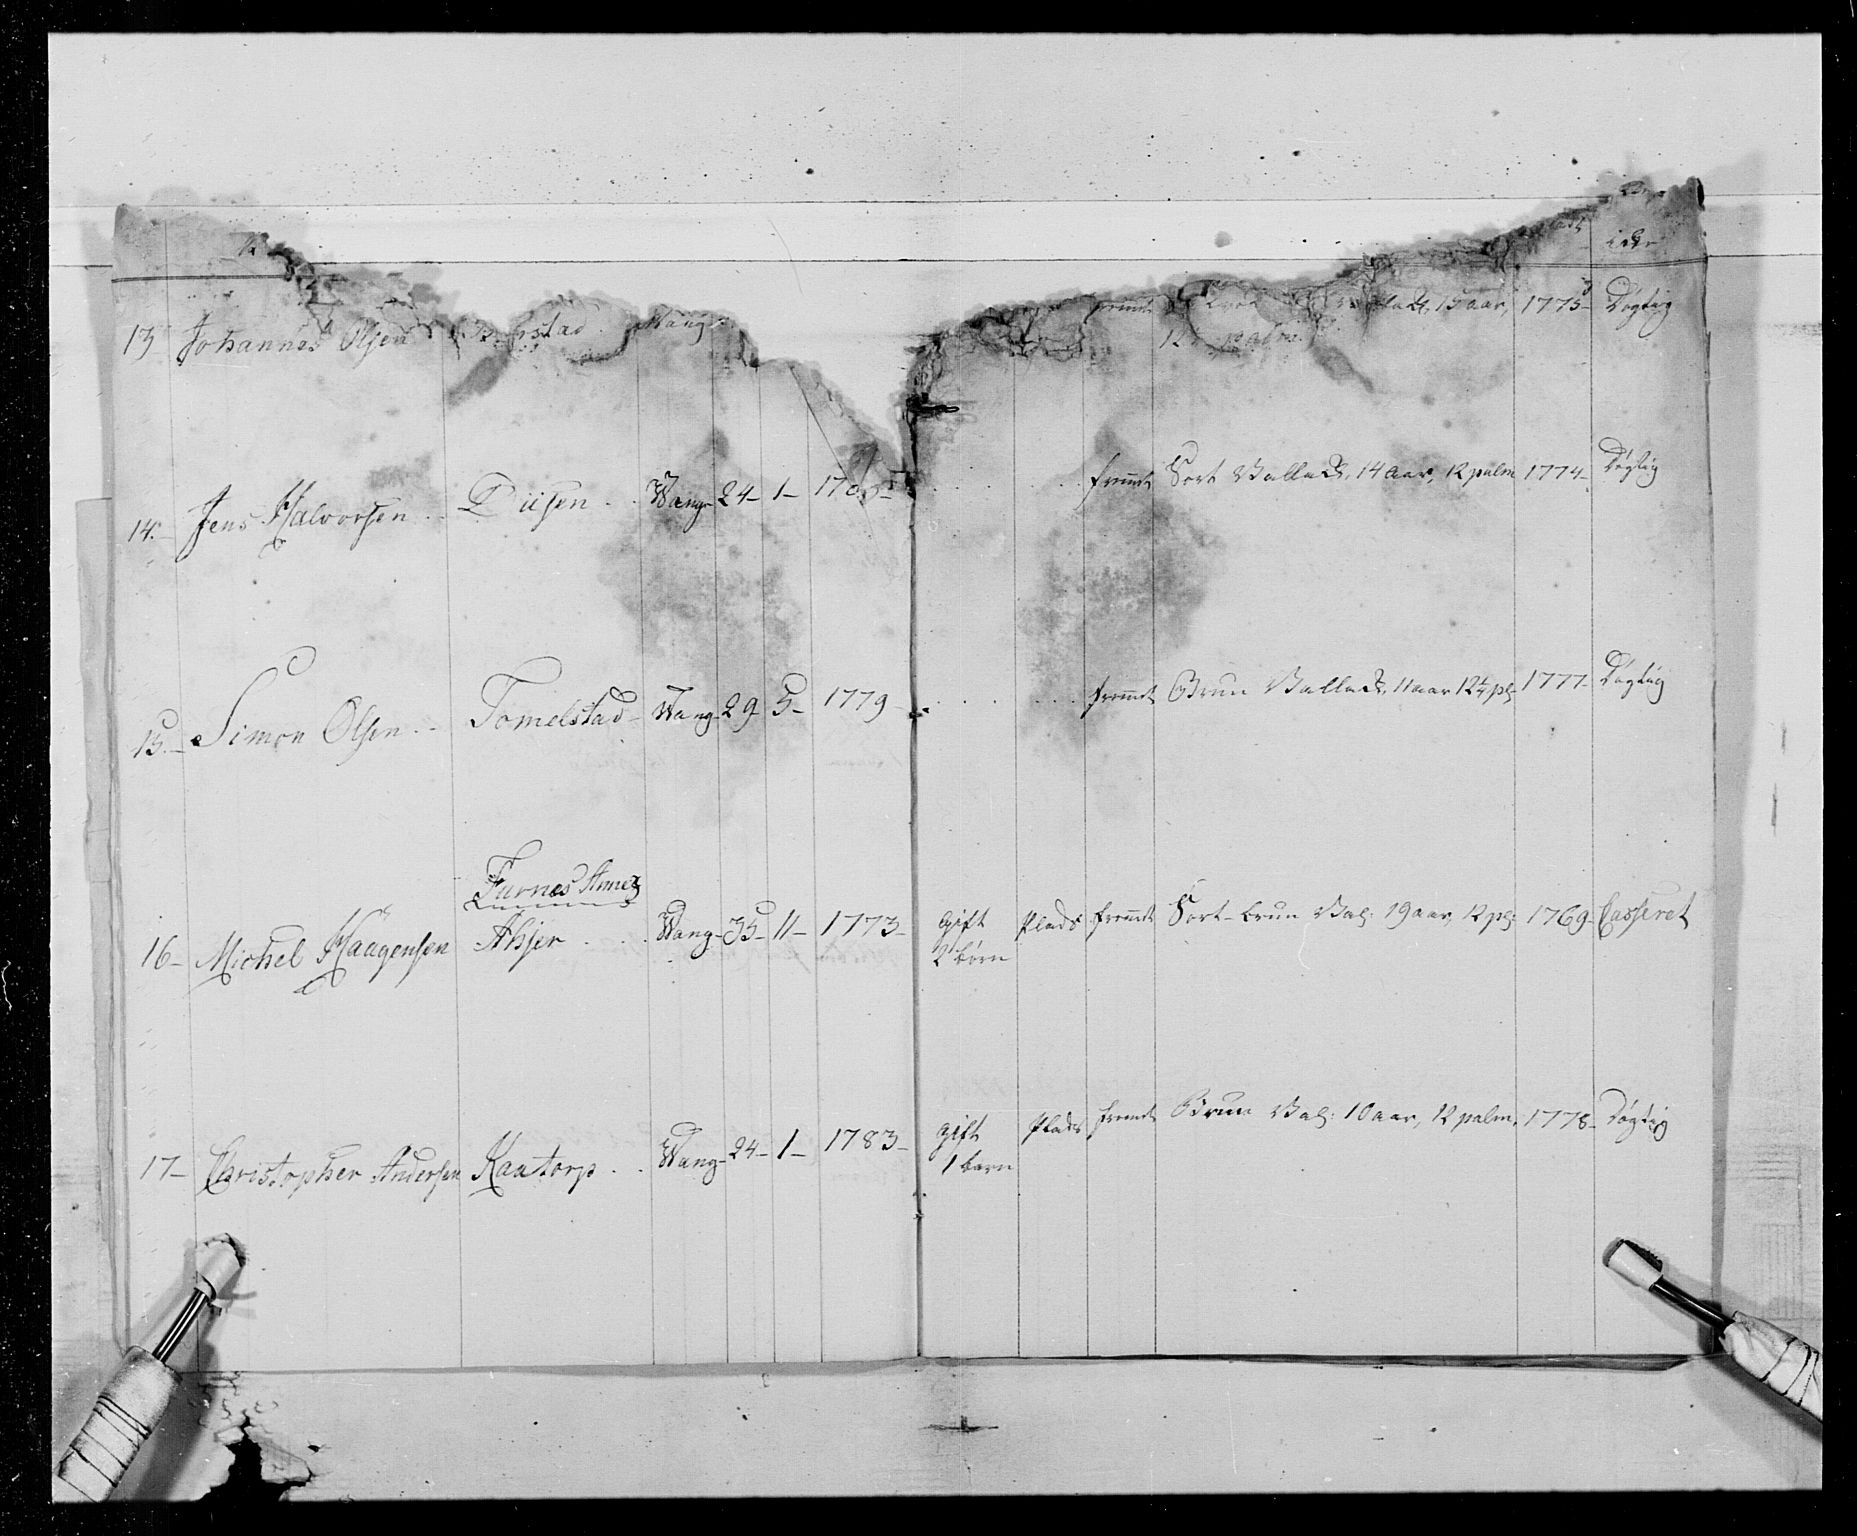 13 Johannes Olsen stad Wang fremt 15 aar, 1775 Døgtig
palm
14. Jens Halvorsen Diisen Wang 24 1 fremt Sort Vallack, 14 aar, 12 palm 1774 Døgtig
15. Simon Olsen Tomelstad Wang 29 5 1779 fremt Brun Vallack, 11 aar 12¼ pl. 1777 Døgtig
Furnes Annex
16 Michel Haagensen Ahser Wang 35 11 1773 Gift Plads fremt Sort-brun Val: 19 aar, 12 pl: 1769 Casseret
2 børn
17 Christopher Andersen Kaatorp Wang 24 1 1783 Gift Plads fremt Brun Val: 10 aar, 12 palm, 1778 Døgtig
1 barn